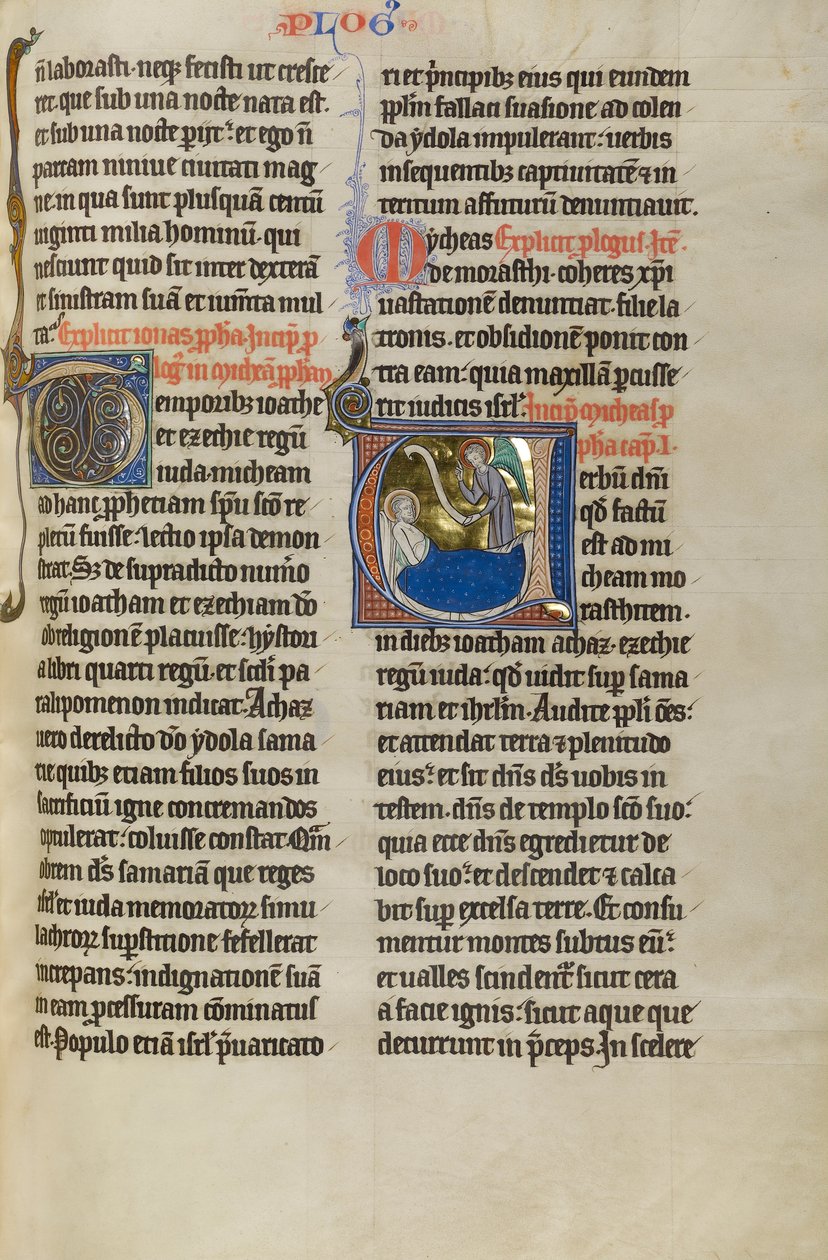 PLOG᷑
n̄ laborasti. neq; fecisti ut cresce
ret. que sub una nocte nata est.
et sub una nocte ꝑijt: et ego n̄
parcam niniue ciuitati mag
ne. in qua sunt plusquā centū
uiginti milia hominū. qui
nesciunt quid sit inter dexterā
et sinistram suā et ium̄ta mul
ta. Explicit ionas ꝓph̄a. Incip̄ ꝓ
log᷑ in micheā ꝓph̄am
Temporibꝫ ioathe
et ezechie regū
iuda. micheam
ad hanc ꝓphetiam sp̄u sc̄o re
pletū fuisse: lectio ipsa demon
strat. Sꝫ de supradicto num̄o
regū ioatham et ezechiam d̄o
ob religionē placuisse. hẏstori
a libri quarti regū. et sc̄di pa
ralipomenon indicat. Achaz
uero derelicto d̄o ẏdola sama
rie quibꝫ etiam filios suos in
sacrificiū igne concremandos
optulerat: coluisse constat. Qm̄
obrem d̄s samariā que reges
isrl̄ et iuda memoratoꝝ simu
lachroꝝ suꝑstitione fefellerat
increpans: indignationē suā
in eam ꝓcessuram cōminatus
est. Populo etiā isrl̄ p̄uaricato
ri et p̄ncipibꝫ eius qui eundem
ppl̄m fallaci suasione ad colen
da ẏdola impulerant: uerbis
insequentibꝫ captiuitatē ⁊ in
teritum affuturū denuntiauit.
Mẏcheas Explicit ꝓlogus. Itē.
de morasthi. coheres xp̄i
uastationē denuntiat. filie la
tronis. et obsidionē ponit con
tra eam: quia maxillā ꝑcusse
rit iudicis isrl̄: Incip̄ Micheas ꝓ
ph̄a cap̄. I.
Verbū dn̄i
qd̄ factū
est ad mi
cheam mo
rasthitem.
in diebꝫ ioatham achaz. ezechie
regū iuda: qd̄ uidit suꝑ sama
riam et ihrl̄m. Audite ppl̄i om̄s:
et attendat terra ⁊ plenitudo
eius: et sit dn̄s d̄s uobis in
testem. dn̄s de templo sc̄o suo:
quia ecce dn̄s egredietur de
loco suo: et descendet ⁊ calca
bit suꝑ excelsa terre. Et consu
mentur montes subtus eū:
et ualles scindent᷑ sicut cera
a facie ignis: sicut aque que
decurrunt in p̄ceps. In scelere